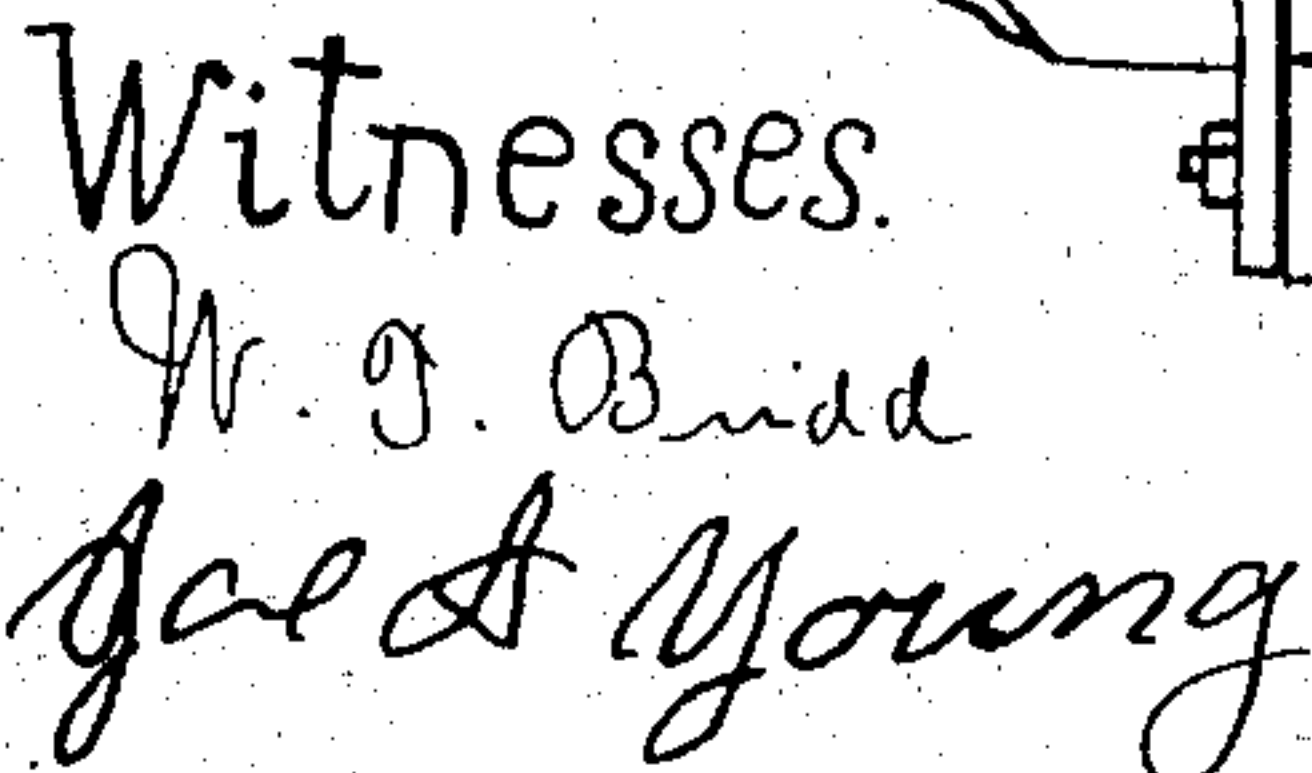 Witnesses.
W. J. Budd
A Young